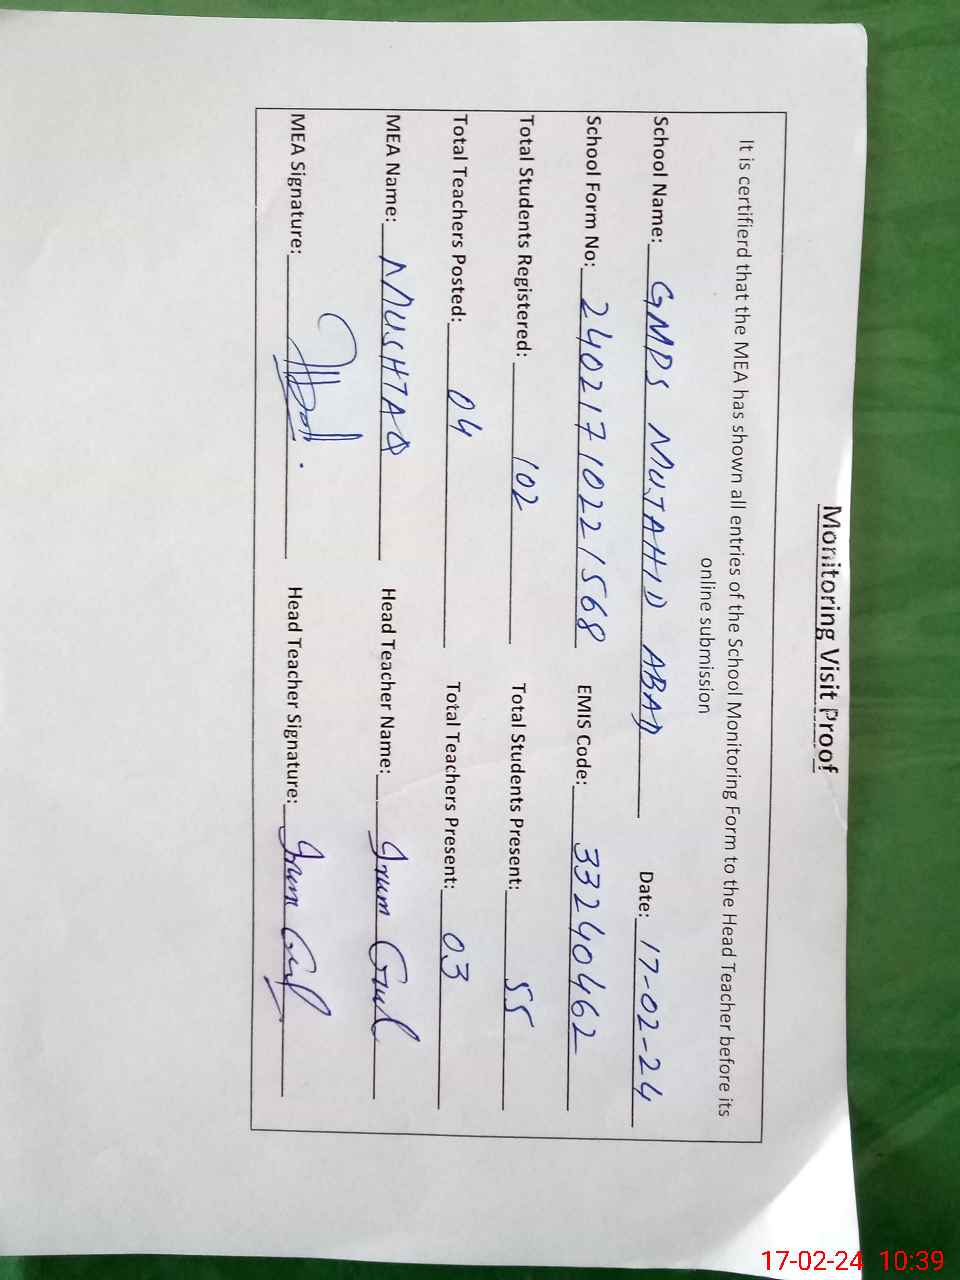 Monitoring Visit Proof
It is certifierd that the MEA has shown all entries of the School Monitoring Form to the Head Teacher before its
online submission
School Name: GMPS MUJAHID ABAD Date: 17-02-24
School Form No: 24021710221568 EMIS Code: 33240462
Total Students Registered: 102 Total Students Present: 55
Total Teachers Posted: 04 Total Teachers Present: 03
MEA Name: MUSHTAQ Head Teacher Name: Irum Gul
MEA Signature: Head Teacher Signature: Irum Gul
17-02-24 10:39